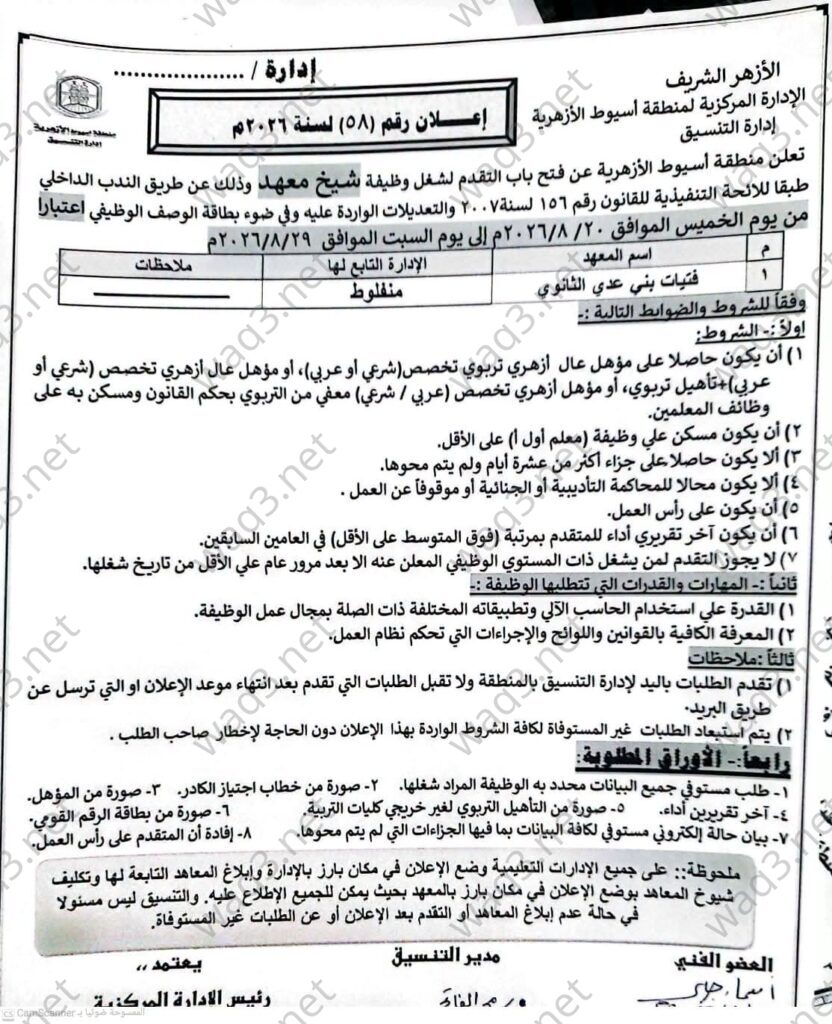 الأزهر الشريف
الإدارة المركزية لمنطقة أسيوط الأزهرية
إدارة التنسيق
إدارة / ......................
منطقة أسيوط الأزهرية
إدارة التنسيق
إعـــلان رقم (٥٨) لسنة ٢٠٢٦م
تعلن منطقة أسيوط الأزهرية عن فتح باب التقدم لشغل وظيفة شيخ معهد وذلك عن طريق الندب الداخلي
طبقا للائحة التنفيذية للقانون رقم ١٥٦ لسنة ٢٠٠٧ والتعديلات الواردة عليه وفي ضوء بطاقة الوصف الوظيفي اعتبارا
من يوم الخميس الموافق ٢٠/ ٢٠٢٦/٨م إلى يوم السبت الموافق ٢٠٢٦/٨/٢٩م
م اسم المعهد الإدارة التابع لها ملاحظات
١ فتيات بني عدي الثانوي منفلوط ــــــــــــــــ
وفقاً للشروط والضوابط التالية :-
اولاً :- الشروط:
١) أن يكون حاصلا على مؤهل عال أزهري تربوي تخصص(شرعي أو عربي)، أو مؤهل عال أزهري تخصص (شرعي أو
عربي)+تأهيل تربوي، أو مؤهل أزهري تخصص (عربي / شرعي) معفي من التربوي بحكم القانون ومسكن به على
وظائف المعلمين.
٢) أن يكون مسكن علي وظيفة (معلم أول أ) على الأقل.
٣) ألا يكون حاصلا على جزاء أكثر من عشرة أيام ولم يتم محوها.
٤) ألا يكون محالا للمحاكمة التأديبية أو الجنائية أو موقوفاً عن العمل .
٥) أن يكون على رأس العمل.
٦) أن يكون آخر تقريري أداء للمتقدم بمرتبة (فوق المتوسط على الأقل) في العامين السابقين.
٧) لا يجوز التقدم لمن يشغل ذات المستوي الوظيفي المعلن عنه الا بعد مرور عام علي الأقل من تاريخ شغلها.
ثانياً :- المهارات والقدرات التي تتطلبها الوظيفة :-
١) القدرة علي استخدام الحاسب الآلي وتطبيقاته المختلفة ذات الصلة بمجال عمل الوظيفة.
٢) المعرفة الكافية بالقوانين واللوائح والإجراءات التي تحكم نظام العمل.
ثالثاً :ملاحظات
١) تقدم الطلبات باليد لإدارة التنسيق بالمنطقة ولا تقبل الطلبات التي تقدم بعد انتهاء موعد الإعلان او التي ترسل عن
طريق البريد.
٢) يتم استبعاد الطلبات غير المستوفاة لكافة الشروط الواردة بهذا الإعلان دون الحاجة لإخطار صاحب الطلب .
رابعاً:- الأوراق المطلوبة:
١- طلب مستوفي جميع البيانات محدد به الوظيفة المراد شغلها. ٢- صورة من خطاب اجتياز الكادر. ٣- صورة من المؤهل.
٤- آخر تقريرين أداء. ٥- صورة من التأهيل التربوي لغير خريجي كليات التربية. ٦- صورة من بطاقة الرقم القومي.
٧- بيان حالة إلكتروني مستوفي لكافة البيانات بما فيها الجزاءات التي لم يتم محوها. ٨- إفادة أن المتقدم على رأس العمل.
ملحوظة:: على جميع الإدارات التعليمية وضع الإعلان في مكان بارز بالإدارة وإبلاغ المعاهد التابعة لها وتكليف
شيوخ المعاهد بوضع الإعلان في مكان بارز بالمعهد بحيث يمكن للجميع الإطلاع عليه. والتنسيق ليس مسئولا
في حالة عدم إبلاغ المعاهد أو التقدم بعد الإعلان أو عن الطلبات غير المستوفاة.
العضو الفني مدير التنسيق يعتمد ،،
رئيس الإدارة المركزية
CS CamScanner الممسوحة ضوئيا بـ
waq3.net